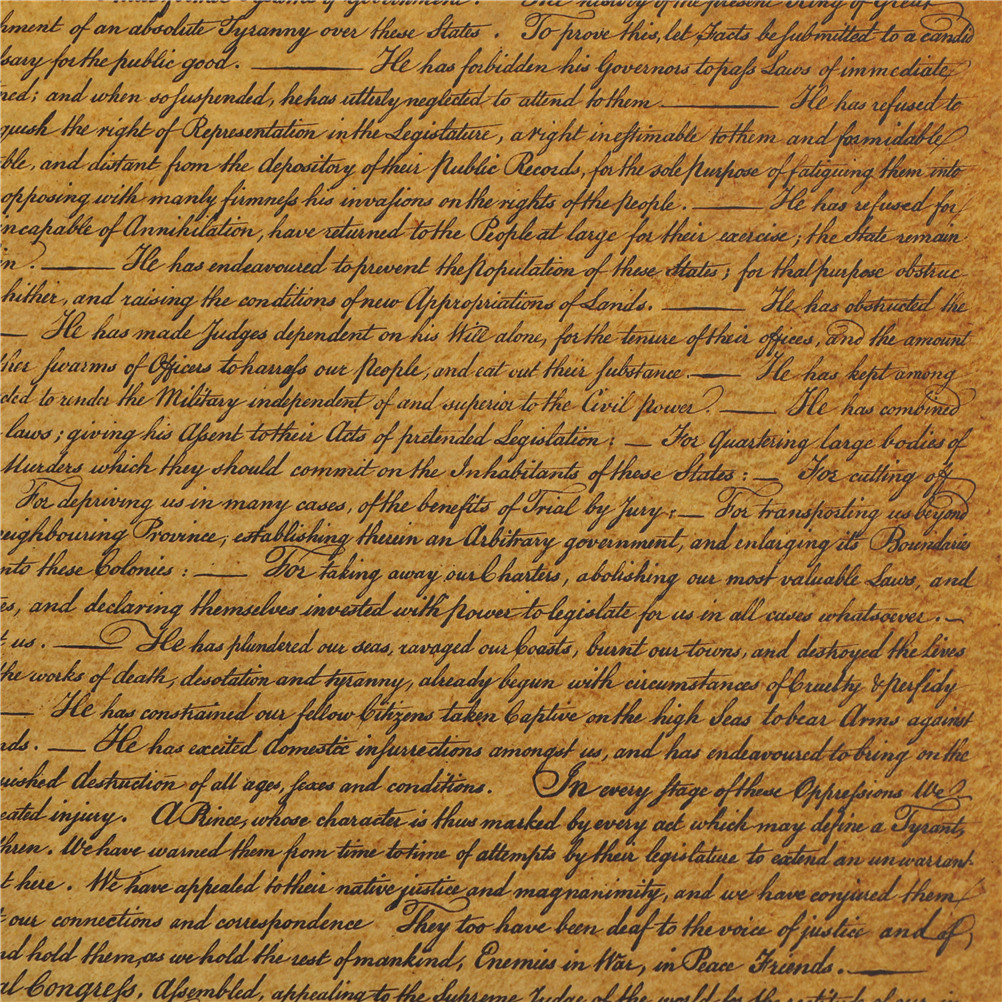 History of the present King of Great
hment of an absolute Tyranny over these States. To prove this, let Facts be submitted to a candid
sary for the public good. — He has forbidden his Governors to pass Laws of immediate
ned; and when so suspended, he has utterly neglected to attend to them — He has refused to
quish the right of Representation in the Legislature, a right inestimable to them and formidable
ble, and distant from the depository of their Public Records, for the sole Purpose of fatiguing them into
opposing with manly firmness his invasions on the rights of the people. — He has refused for
incapable of Annihilation, have returned to the People at large for their exercise; the State remain
in. — He has endeavoured to prevent the Population of these States; for that purpose obstruc
hither, and raising the conditions of new Appropriations of Lands. — He has obstructed the
— He has made Judges dependent on his Will alone, for the tenure of their offices, and the amount
ther swarms of Officers to harrass our People, and eat out their substance. — He has kept among
cted to render the Military independent of and superior to the Civil Power. — He has combined
laws; giving his Assent to their Acts of pretended Legislation: — For quartering large bodies of
Murders which they should commit on the Inhabitants of these States: — For cutting off
For depriving us in many cases, of the benefits of Trial by Jury: — For transporting us beyond
neighbouring Province, establishing therein an Arbitrary government, and enlarging its Boundaries
nto these Colonies: — For taking away our Charters, abolishing our most valuable Laws, and
es, and declaring themselves invested with power to legislate for us in all cases whatsoever. —
t us. — He has plundered our seas, ravaged our Coasts, burnt our towns, and destroyed the lives
the works of death, desolation and tyranny, already begun with circumstances of Cruelty & perfidy
— He has constrained our fellow Citizens taken Captive on the high Seas to bear Arms against
nds. — He has excited domestic insurrections amongst us, and has endeavoured to bring on the
uished destruction of all ages, sexes and conditions. In every stage of these Oppressions We
eated injury. A Prince, whose character is thus marked by every act which may define a Tyrant,
thren. We have warned them from time to time of attempts by their legislature to extend an unwarrant
t here. We have appealed to their native justice and magnanimity, and we have conjured them
t our connections and correspondence They too have been deaf to the voice of justice and of
nd hold them, as we hold the rest of mankind, Enemies in War, in Peace Friends. —
al Congress, Assembled, appealing to the Supreme Judge of the world for the